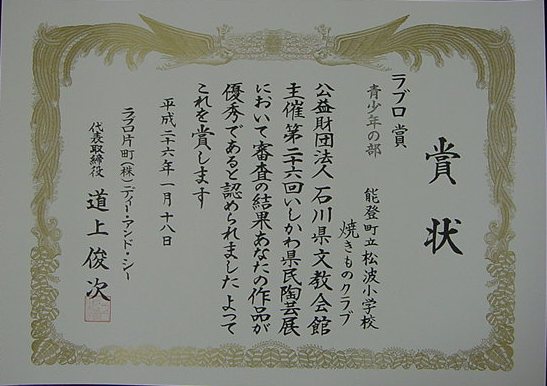 賞状
ラブロ賞
青少年の部 能登町立松波小学校
焼きものクラブ
公益財団法人 石川県文教会館
主催 第二十六回いしかわ県民陶芸展
において審査の結果あなたの作品が
優秀であると認められました よって
これを賞します
平成二十六年一月十八日
ラブロ片町(株)ディー・アンド・シー
代表取締役 道上俊次